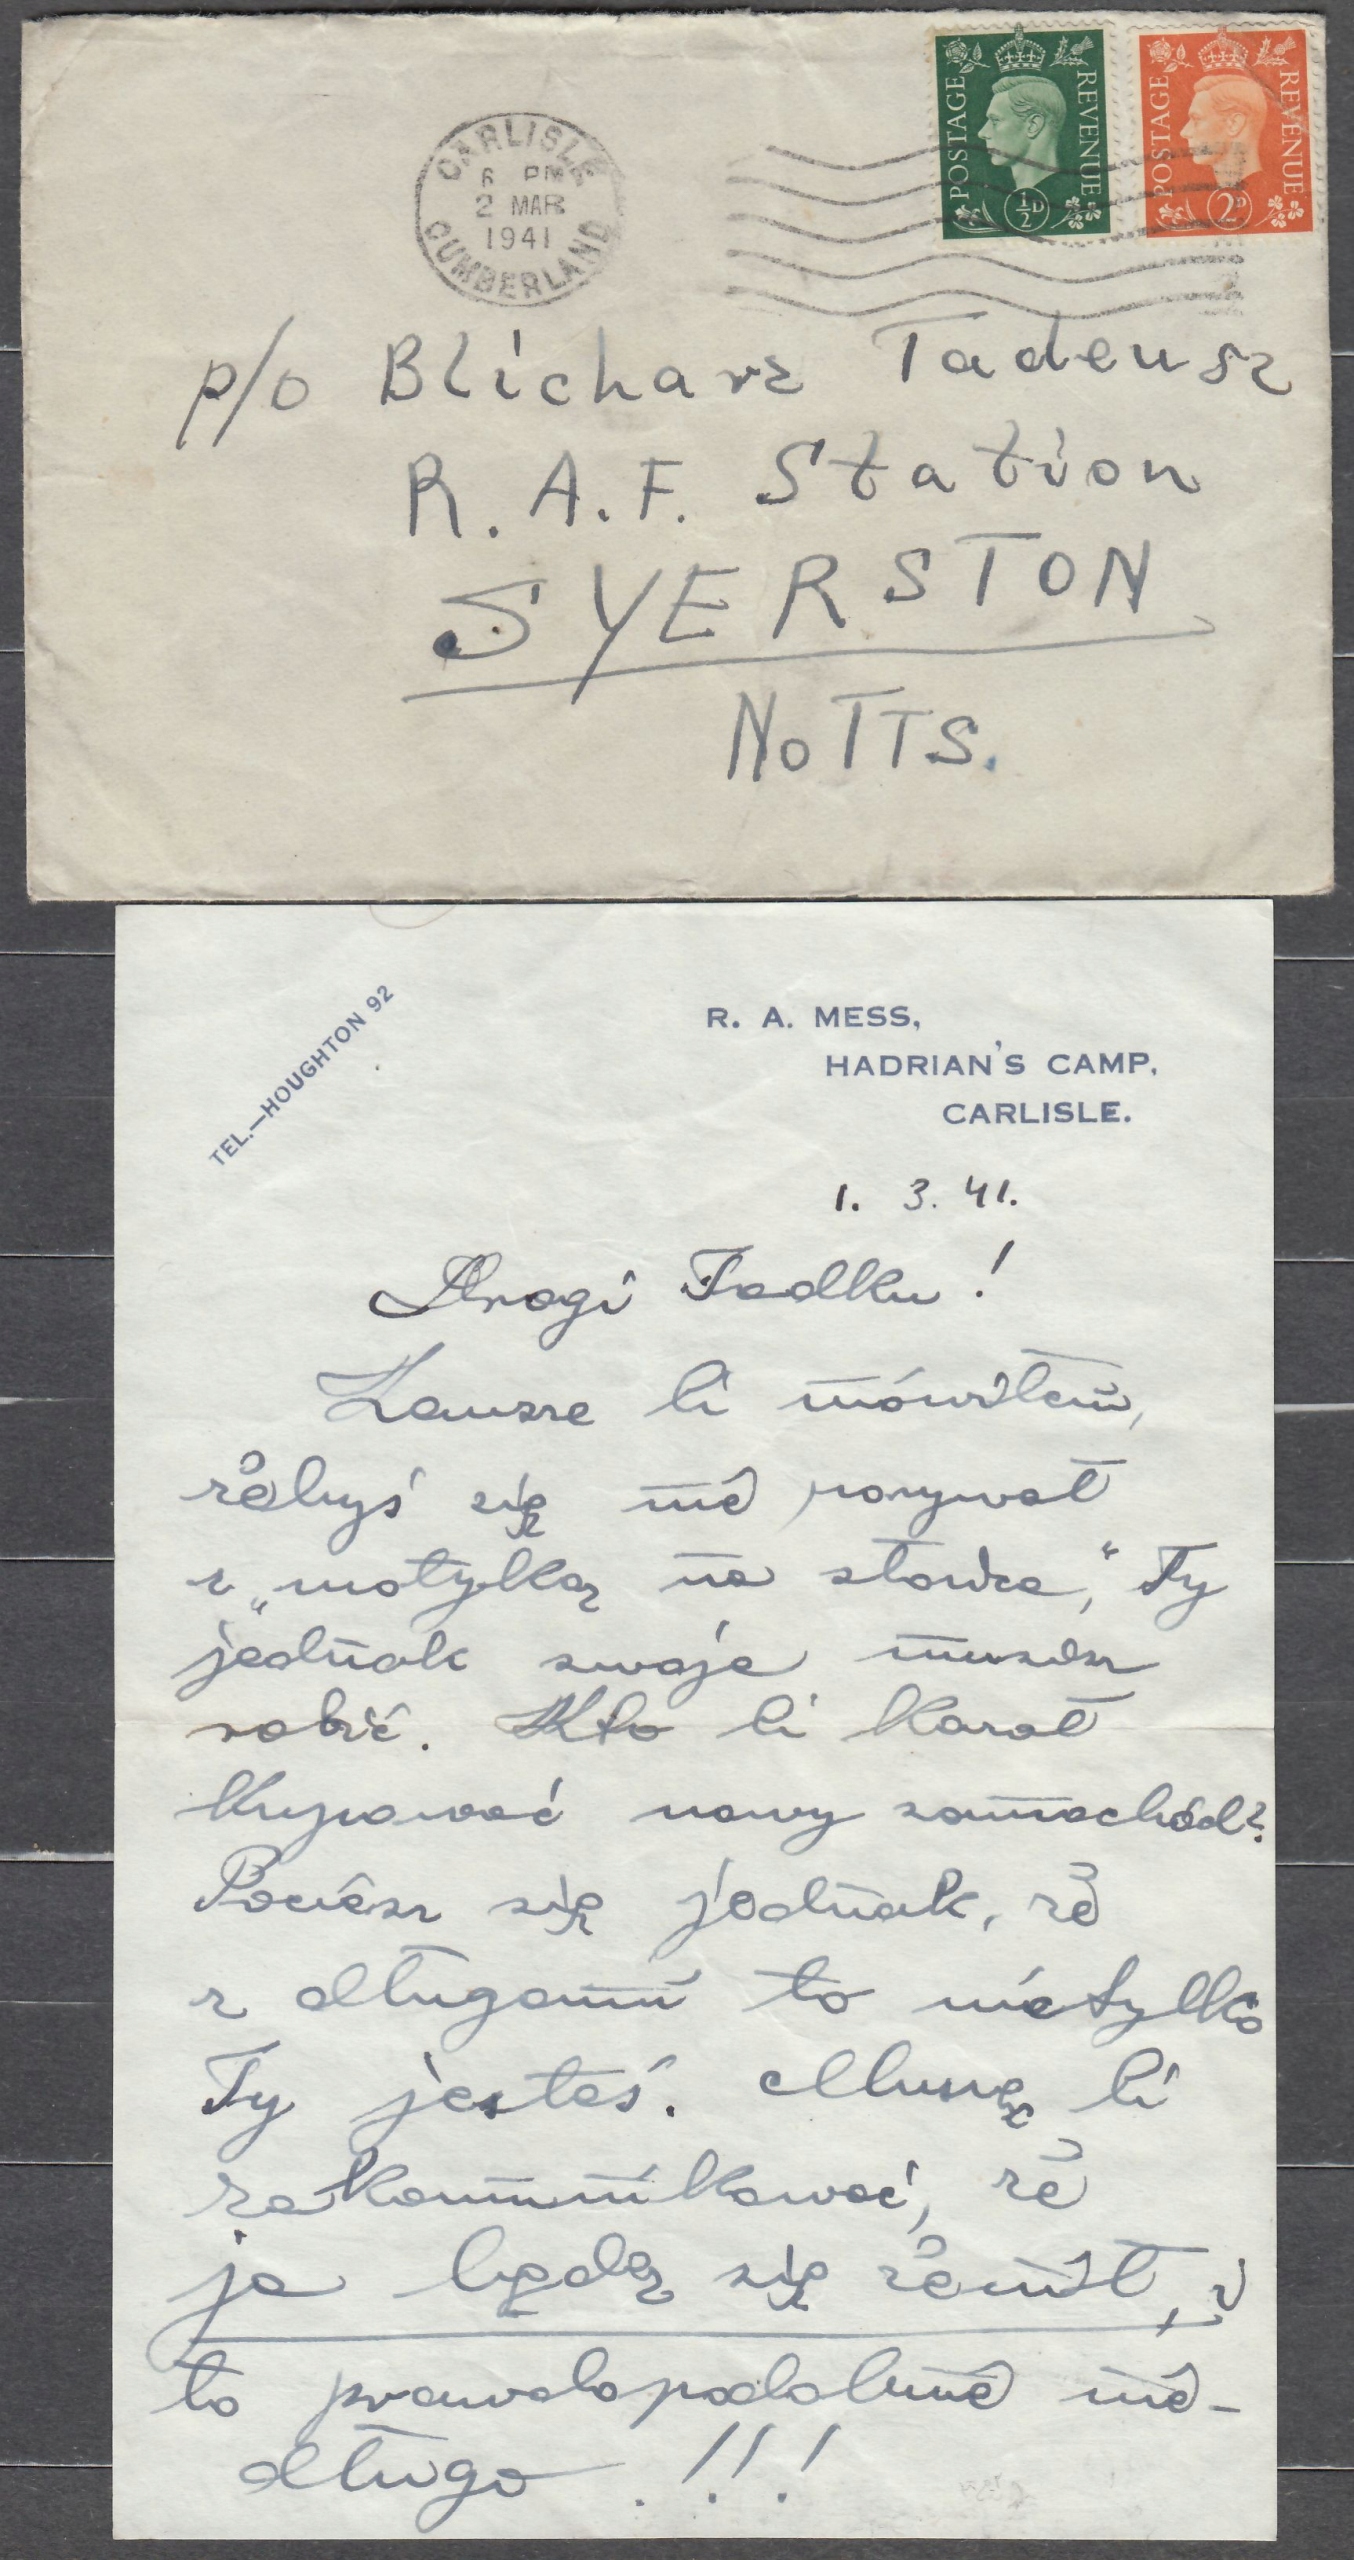 CARLISLE
6 PM
2 MAR
1941
CUMBERLAND
POSTAGE REVENUE
½D
POSTAGE REVENUE
2D
p/o Blicharz Tadeusz
R.A.F. Station
SYERSTON
NOTTS.
TEL.—HOUGHTON 92
R. A. MESS,
HADRIAN'S CAMP,
CARLISLE.
1. 3. 41.
Drogi Tadku!
Zawsze Ci mówiłem,
żebyś się nie porywał
z „motyką na słońce," Ty
jednak swoje musisz
robić. Kto Ci kazał
kupować nowy samochód?
Pociesz się jednak, że
z długami to nietylko
Ty jesteś. Muszę Ci
zakomunikować, że
ja będę się żenił, i
to prawdopodobnie nie-
długo !!!